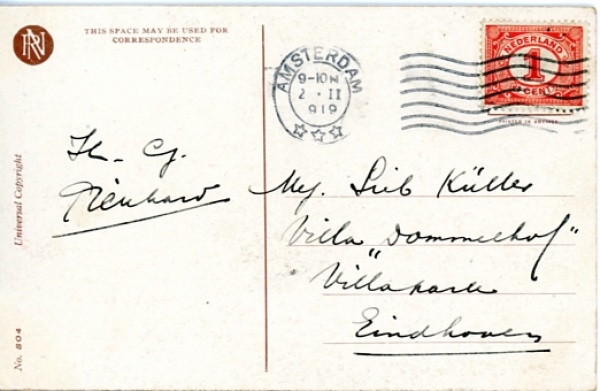 THIS SPACE MAY BE USED FOR
CORRESPONDENCE
AMSTERDAM
9-10 N
2 · II
919
NEDERLAND
1
CENT
PRINTED IN
Universal Copyright
No. 804
Mej. Küller
Villa "Dommelhof"
Villapark
Eindhoven